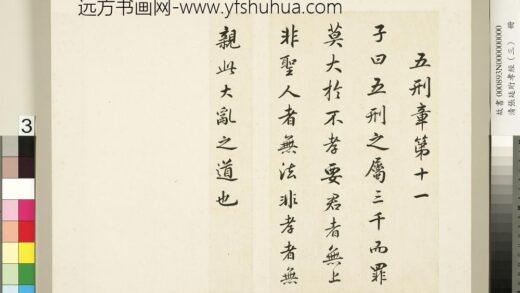 远方书画网-www.yfshuhua.com
五刑章第十一
子曰五刑之屬三千而罪
莫大於不孝要君者無上
非聖人者無法非孝者無
親此大亂之道也
故書000893N000000000
清張廷玠孝經（三） 冊
3